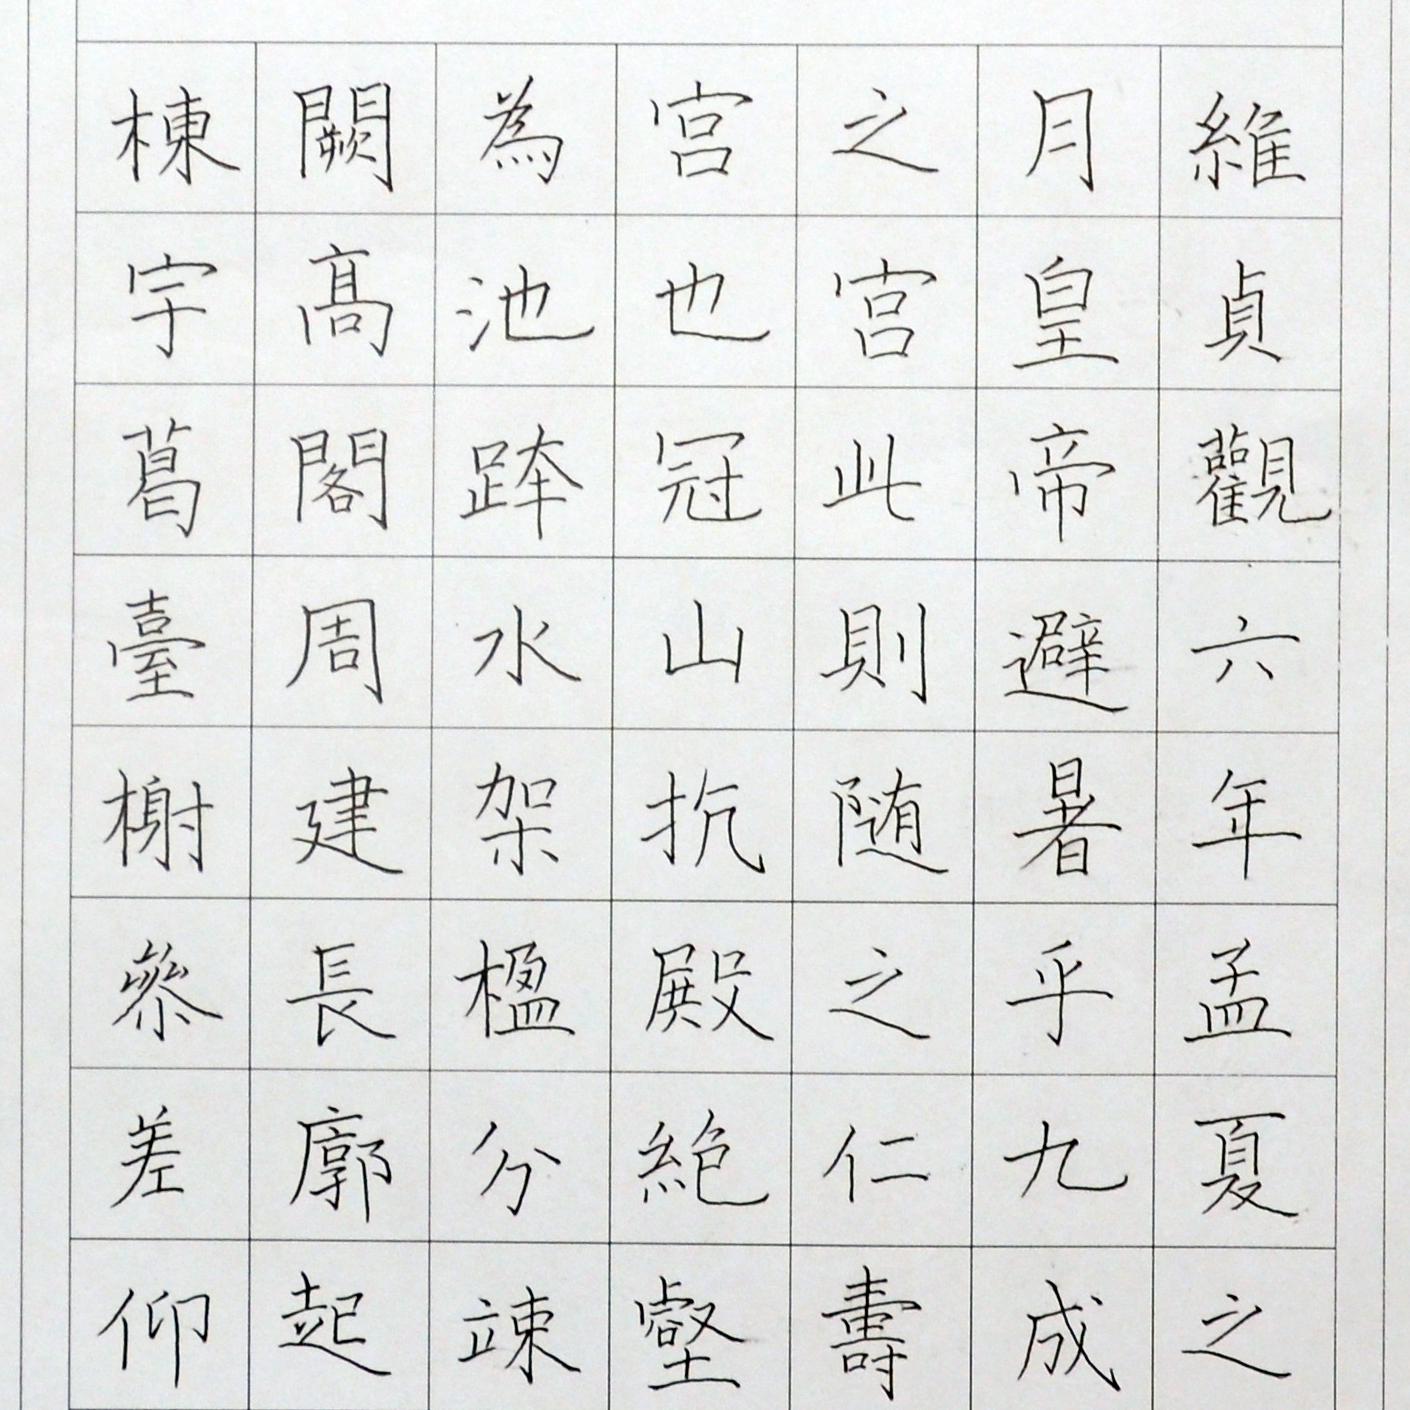 維貞觀六年孟夏之
月皇帝避暑乎九成
之宮此則随之仁壽
宮也冠山抗殿絶壑
為池跨水架楹分竦
闕高閣周建長廊起
棟宇葛臺榭參差仰